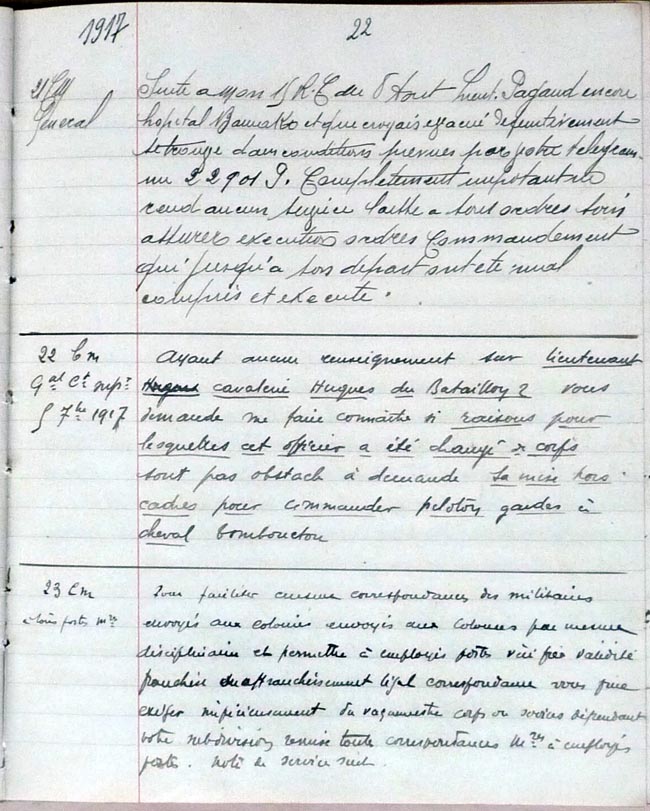 1917
22
21 CM
General
Suite a mon 15 R.C du 8 Aout Lieut. Pagaud encore
hopital Bamako et que croyais evacué definitivement
se trouve dans conditions prevues par votre telegram
me 22901 P. Completement impotant ne
rend aucun service laisse a sous ordres soin
assurer execution ordres Commandement
qui jusqu'a son depart ont ete mal
compris et execute.
22 Cm
Gal Ct supr
5 7bre 1917
Ayant aucun renseignement sur lieutenant
Hugues cavalerie Hugues du Bataillon 2 vous
demande me faire connaitre si raisons pour
lesquelles cet officier a été changé de corps
sont pas obstacle à demande sa mise hors
cadres pour commander peloton gardes à
cheval Tombouctou
23 Cm
à tous postes mres
Pour faciliter correspondances des militaires
envoyés aux colonies envoyés aux colonies par mesure
disciplinaire et permettre à employés postes vérifier validité
franchise ou affranchissement légal correspondance vous prie
exiger impérieusement du vaguemestre corps ou services dépendant
votre subdivision remise toute correspondances mres à employés
postes. Note de service suit.